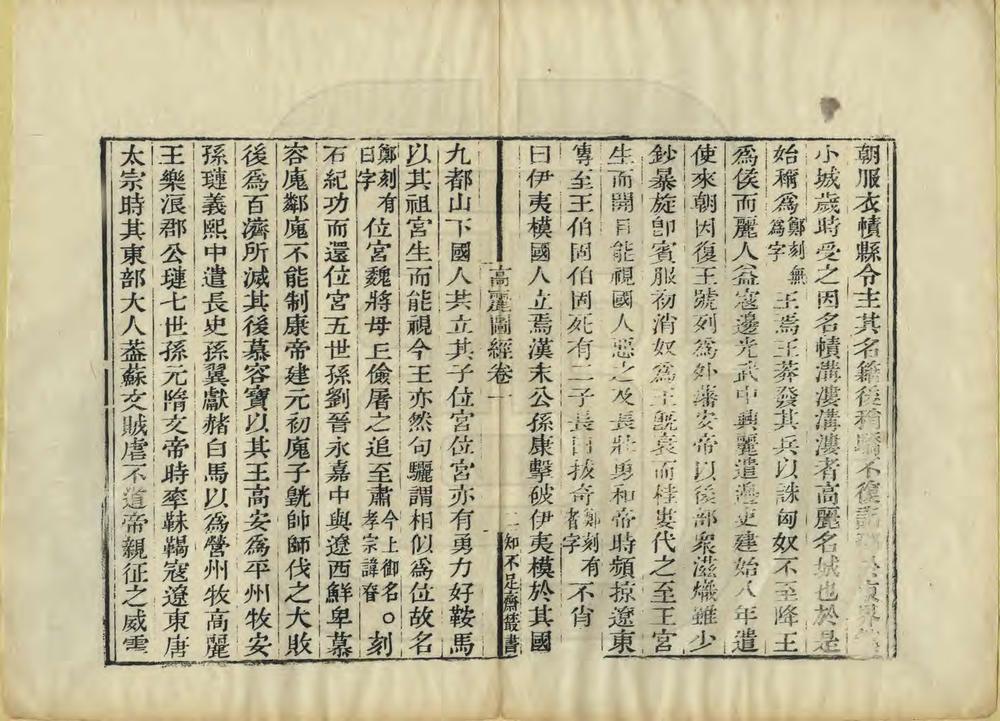 朝服衣幘縣令主其名籍後稍驕不復詣
小城歲時受之因名幘溝漊溝漊者高麗名城也於是
始稱爲鄭刻無爲字王焉王莽發其兵以誅匈奴不至降王
爲侯而麗人益寇邊光武中興麗遣使更建始八年遣
使來朝因復王號列爲外藩安帝以後部衆滋熾雖少
鈔暴旋卽賓服初消奴爲王旣衰而桂婁代之至王宮
生而開目能視國人惡之及長壯勇和帝時頻掠遼東
傳至王伯固伯固死有二子長曰拔奇鄭刻有者字不肖
曰伊夷模國人立焉漢末公孫康擊破伊夷模於其國
高麗圖經卷一
二
知不足齋叢書
九都山下國人共立其子位宮位宮亦有勇力好鞍馬
以其祖宮生而能視今王亦然句驪謂相似爲位故名
鄭刻有曰字位宮魏將毋丘儉屠之追至肅今上御名。孝宗諱眘刻
石紀功而還位宮五世孫劉晉永嘉中與遼西鮮卑慕
容廆鄰廆不能制康帝建元初廆子皝帥師伐之大敗
後爲百濟所滅其後慕容寶以其王高安爲平州牧安
孫璉義熙中遣長史孫翼獻赭白馬以爲營州牧高麗
王樂浪郡公璉七世孫元隋文帝時率靺鞨寇遼東唐
太宗時其東部大人蓋蘇文賊虐不道帝親征之威震